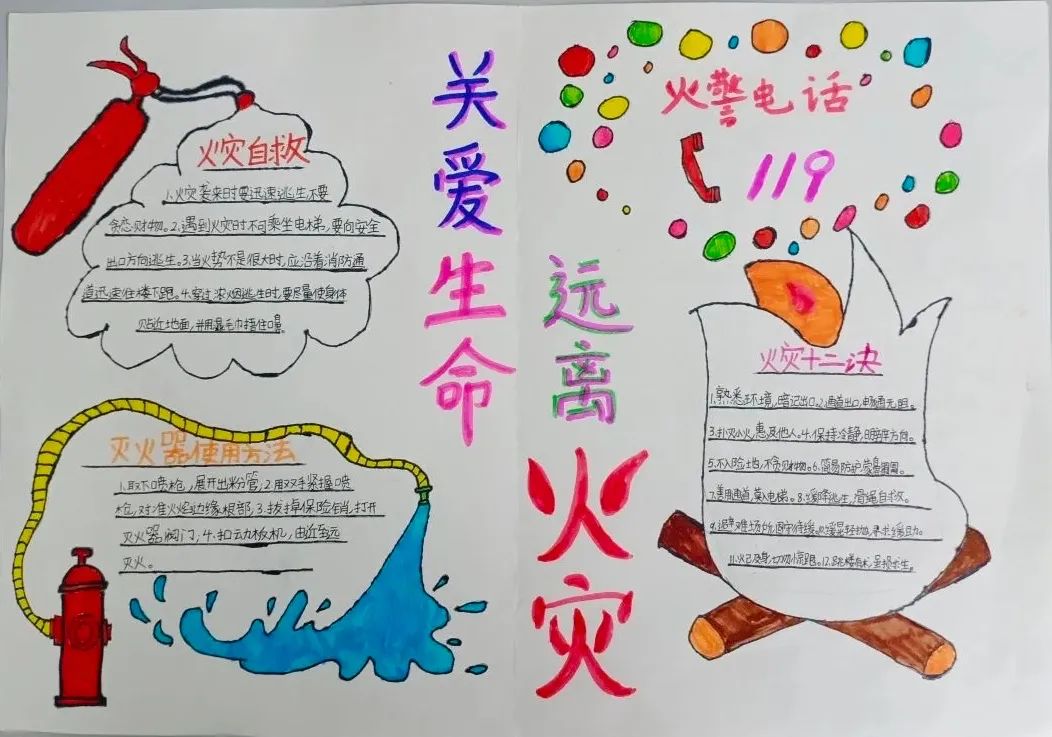 关爱生命
远离火灾
火灾自救
1.火灾袭来时要迅速逃生,不要
贪恋财物。2.遇到火灾时不可乘坐电梯,要向安全
出口方向逃生。3.当火势不是很大时,应沿着消防通
道迅速往楼下跑。4.穿过浓烟逃生时,要尽量使身体
贴近地面,并用湿毛巾捂住口鼻
灭火器使用方法
1.取下喷枪,展开出粉管,2.用双手紧握喷
枪,对准火焰边缘根部,3.拔掉保险销,打开
灭火器阀门,4.扣动板机,由近至远
灭火。
火警电话
119
火灾十二诀
1.熟悉环境,暗记出口2.通道出口,畅通无阻。
3.扑灭小火,惠及他人。4.保持冷静,明辨方向。
5.不入险地,不贪财物。6.简易防护,蒙鼻匍匐。
7.善用通道,莫入电梯。8.缓降逃生,滑绳自救。
9.避难场所,固守待援。
11.火已及身,切勿惊跑。12.跳楼有术,虽损求生。